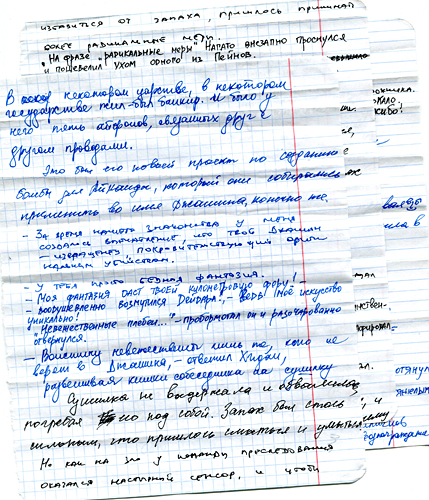 избавиться от запаха, пришлось принимать
более радикальные меры.
"На фразе "радикальные меры" Нагато внезапно проснулся
и пошевелил ухом одного из Пейнов.
В некотором царстве, в некотором
государстве жил-был банкир. И было у
него пять айфонов, связанных друг с
другом проводами.
Это был его новый проект по созданию
бомбы для Акацки, который они собирались
применить во имя Джашина, конечно же.
- За время нашего знакомства у меня
создалось впечатление, что твой Джашин
- извращенец, покровительствующий оргиям
и убийствам.
- У тебя просто бедная фантазия.
- Моя фантазия даст твоей километровую фору!
- воодушевленно возмутился Дейдара, - Верь! Моё искусство
уникально!
"Невежественные плебеи..." - пробормотал он и разочарованно
отвернулся.
- Воистину невежественны лишь те, кто не
верят в Джашина, - ответил Хидан,
развешивая кишки собеседника на сушилку
Сушилка не выдержала и обвалилась,
погребая его под собой. Запах был столь
сильным, что пришлось смыться и умыться
Но как на зло у команды преследования
оказался настоящий сенсор, и чтобы